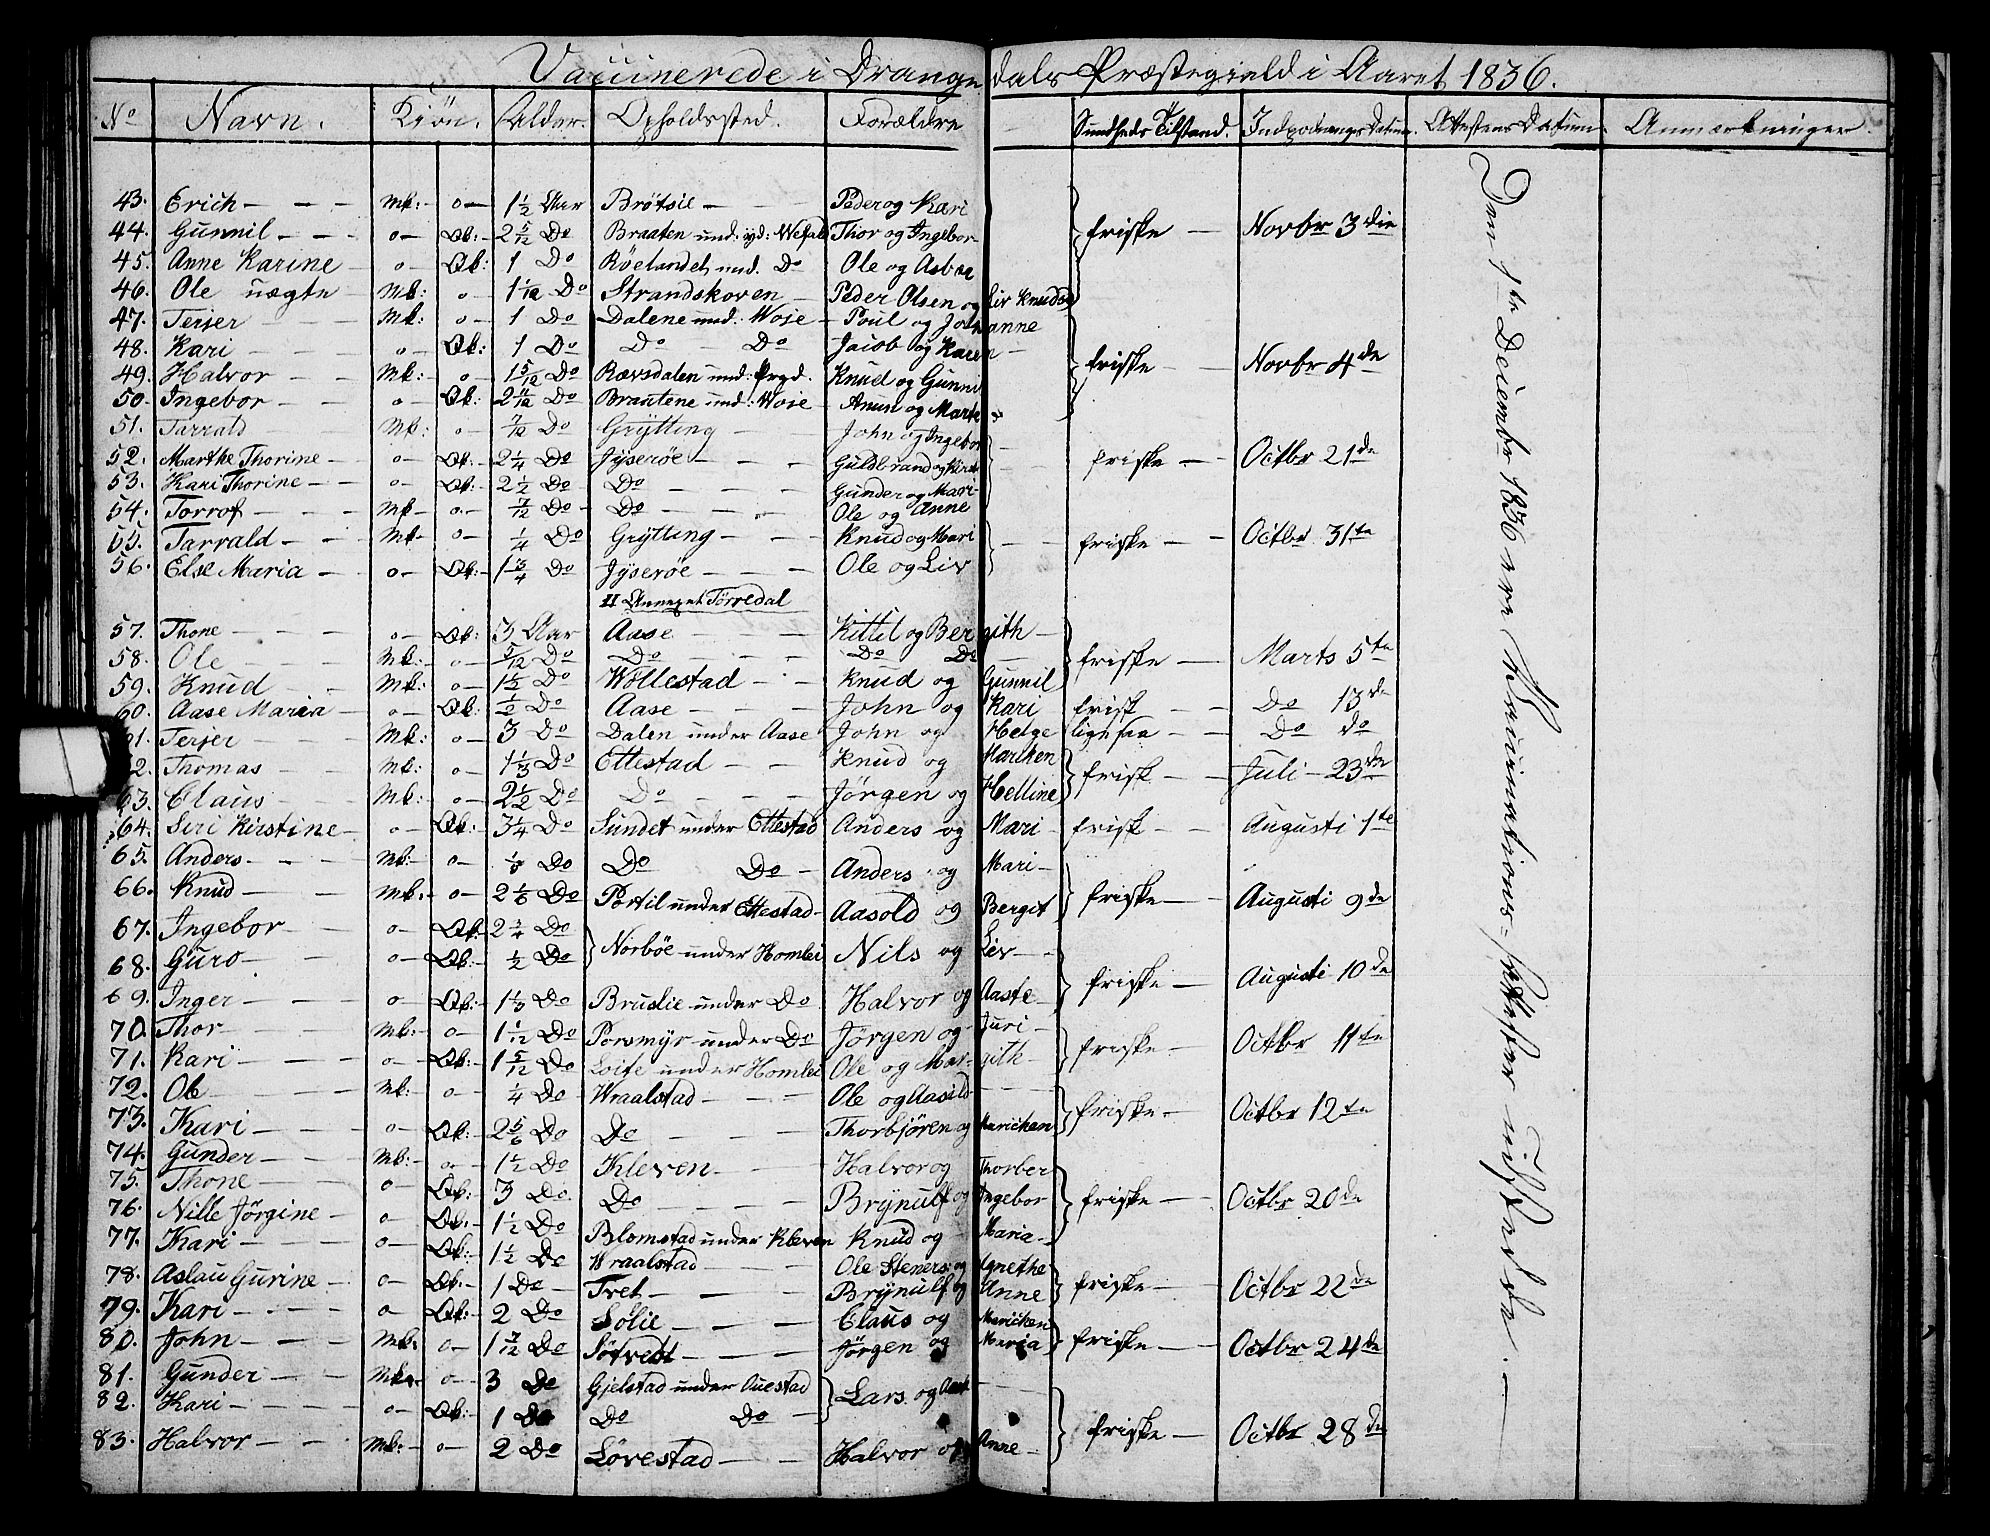 Vaccinerede i Drangedals Præstegield i Aaret 1836.
No Navn. Kiøn. Alder. Opholdssted. Forældre Sundheds Tilstand. Indpodnings Datum. Attestens Datum. Anmærkninger.
43. Erich Mk: o 1 1/2 Aar Brøtsie Peder og Kari
44. Gunnil o Qk: 2 5/12 Do Braaten und: yd: Wefald Thor og Ingebor friske Novbr 3die
45. Anne Karine o Qk: 1 Do Røelandet und. Do Ole og Asbra
46. Ole uægte Mk: o 1 1/12 Do Strandskoven Peder Olsen og Liv Knudsd
47. Terjer Mk: o 1 Do Dalene und: Wose Poul og Johanne
48. Kari o Qk: 1 Do Do Do Jacob og Karen friske Novbr 4de
49. Halvor Mk: o 1 5/12 Do Rævsdalen und: Prgd. Knud og Gunnil
50. Ingebor o Qk: 2 11/12 Do Brautene und: Wose Anun og Marte
51. Tarrald Mk: o 7/12 Do Grytting John og Ingebor
52. Marthe Thorine o Qk: 2 1/4 Do Jyserøe Guldbrand og friske Octbr 21de
53. Kari Thorine o Qk: 2 1/2 Do Do Gunder og Mari
54. Torrof Mk o 7/12 Do Do Ole og Anne
55. Tarrald Mk o 1/4 Do Grytting Knud og Mari friske Octbr 31te
56. Else Maria o Qk: 1 3/4 Do Jyserøe Ole og Liv
II Annexet Tørredal
57. Thone o Qk: 3 Aar Aase Kittil og Bergith
58. Ole Mk: o 5/12 Do Do Do Do friske Marts 5te
59. Knud Mk: o 1 1/2 Do Wöllestad Knud og Gunnil
60. Aase Maria o Qk: 1/2 Do Aase John og Kari frisk Do 13de
61. Terjer Mk: o 3 Do Dalen under Aase John og Helge ligesaa Do do
62. Thomas Mk: o 1 1/3 Do Ettestad Knud og Mariken frisk Juli 23de
63. Claus Mk: o 2 1/2 Do Do Jørgen og Helline
64. Siri Kirstine o Qk: 3 1/4 Do Sundet under Ettestad Anders og Mari frisk Augusti 1te
65. Anders Mk: o 1/3 Do Do Do Anders og Mari
66. Knud Mk: o 2 1/6 Do Postil under Ettestad Aasold og Bergit friske Augusti 9de
67. Ingebor o Qk: 2 3/4 Do Norbøe under Homlei Nils og Liv
68. Guro o Qk: 1/2 Do friske Augusti 10de
69. Inger o Qk: 1 1/3 Do Bruslie under Do Halvor og Aaste
70. Thor Mk: o 1 1/12 Do Porsmyr under Do Jørgen og Juri friske Octbr 11te
71. Kari o Qk: 1 5/12 Do Loite under Homlei Ole og Margith
72. Ole Mk: o 1/4 Do Wraalstad Ole og Aasild friske Octbr 12te
73. Kari o Qk: 2 5/6 Do Do Thorbjören og Marichen
74. Gunder Mk: o 1 1/2 Do Kleven Halvor og Thorber
75. Thone o Qk: 3 Do Do Brynulf og Ingebor friske Octbr 20de
76. Nille Jørgine o Qk: 1 1/2 Do Blomstad under Kleven Knud og Maria
77. Kari o Qk: 1 1/2 Do Wraalstad Ole Steners og Agnethe
78. Aslau Gurine o Qk: 1 Do Tvet Brynulf og Anne friske Octbr 22de
79. Kari o Qk: 2 Do Solie Claus og Marichen
80. John Mk: o 1 7/12 Do Søtvedt Jørgen og Maria friske Octbr 24de
81. Gunder Mk: o 3 Do Gjelstad under Auestad Lars og Aase
82. Kari o Qk: 1 Do Do Do friske Octbr 28de
83. Halvor Mk: o 2 Do Løvestad Halvor og Anne
Den 1ste Decembr 1836 ere Vaccinations-Attester udstedde.